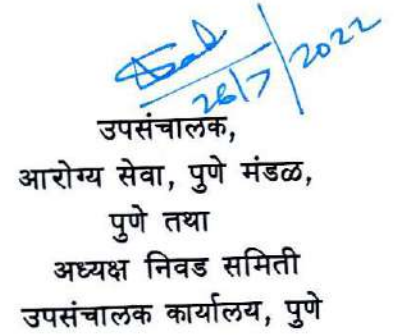 26/7/2022
उपसंचालक,
आरोग्य सेवा, पुणे मंडळ,
पुणे तथा
अध्यक्ष निवड समिती
उपसंचालक कार्यालय, पुणे